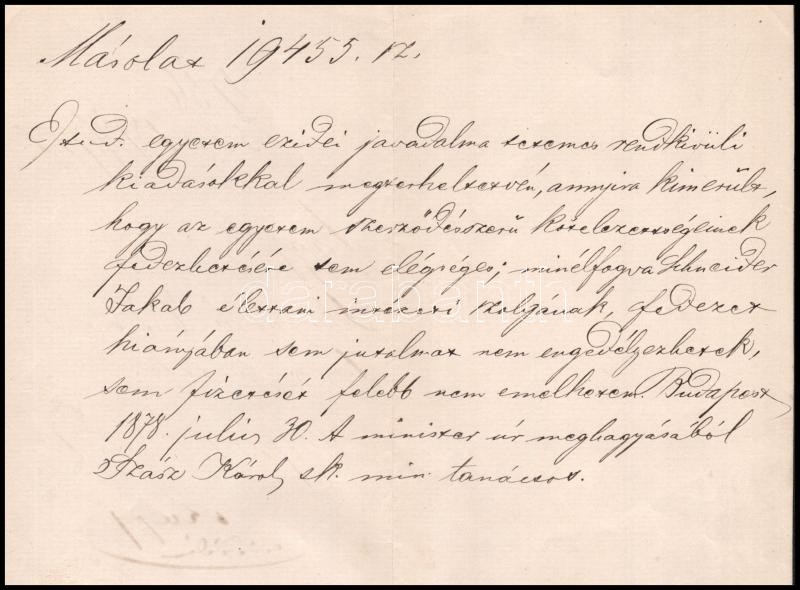 Másolat 19455. sz.
A tud. egyetem ezidei javadalma tetemes rendkivüli
kiadásokkal megterheltetvén, annyira kimerült,
hogy az egyetem szerződésszerű kötelezettségeinek
fedezhetésére sem elégséges; minélfogva Schneider
Jakab élettani intézeti szolgának, fedezet
hiányjában sem jutalmat nem engedélyezhetek,
sem fizetését felebb nem emelhetem. Budapest,
1878. julius 30. A minister úr meghagyásából
Szász Károly sk. min. tanácsos.
darabanth